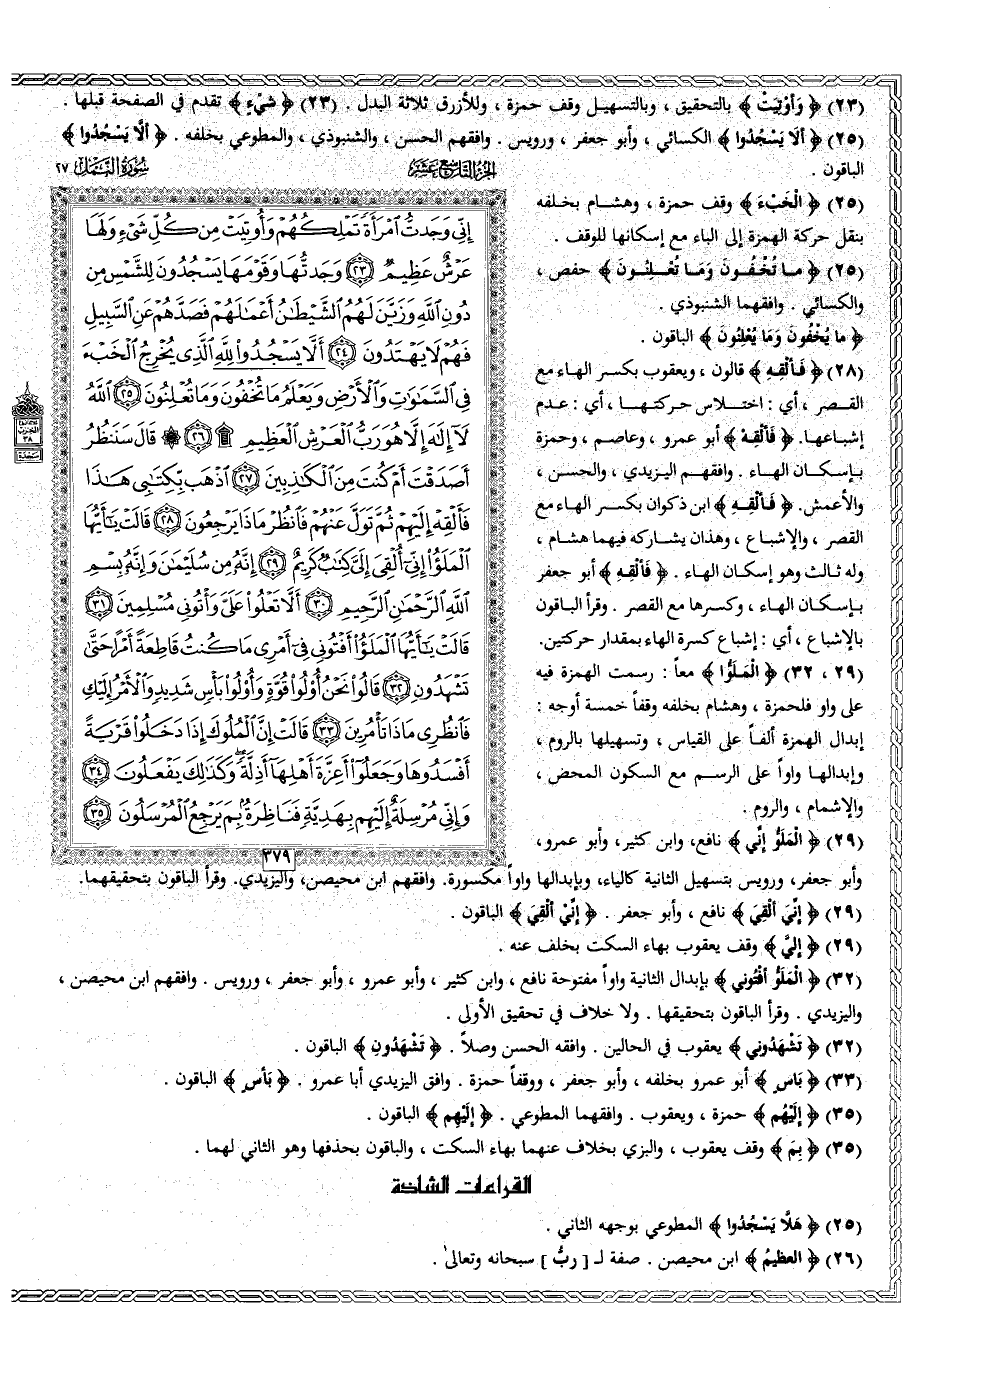 (٢٣) ﴿ وَأُوْتِيَتْ ﴾ بالتحقيق ، وبالتسهيل وقف حمزة ، وللأزرق ثلاثة البدل . (٢٣) ﴿ شَيْءٍ ﴾ تقدم في الصفحة قبلها .
(٢٥) ﴿ أَلَا يَسْجُدُوا ﴾ الكسائي ، وأبو جعفر ، ورويس . وافقهم الحسن ، والشنبوذي ، والمطوعي بخلفه . ﴿ أَلَّا يَسْجُدُوا ﴾
الباقون .
(٢٥) ﴿ الْخَبْءَ ﴾ وقف حمزة ، وهشام بخلفه
بنقل حركة الهمزة إلى الباء مع إسكانها للوقف .
(٢٥) ﴿ مـا تُخْـفُـونَ وَمَـا تُعْـلِنُـونَ ﴾ حفص ،
والكسائي . وافقهما الشنبوذي .
﴿ ما يُخْفُونَ وَمَا يُعْلِنُونَ ﴾ الباقون .
(٢٨) ﴿ فَـأَلْقِـهِ ﴾ قالون ، ويعقوب بكسر الهاء مع
القـصـر ، أي : اخـتـلاس حـركتـهـا ، أي : عـدم
إشباعها. ﴿ فَأَلْقِهْ ﴾ أبو عمرو ، وعاصم ، وحمزة
بـإسكـان الهـاء . وافقهـم اليزيدي ، والحسن ،
والأعمش. ﴿ فَـأَلْقِـهِ ﴾ ابن ذكوان بكسر الهاء مع
القصر ، والإشباع ، وهذان يشاركه فيهما هشام ،
وله ثـالـث وهو إسكـان الهـاء . ﴿ فَأَلْقِهِ ﴾ أبو جعفر
بـإسكـان الهـاء ، وكسـرهـا مع القصر . وقرأ الباقون
بالإشباع ، أي : إشباع كسرة الهاء بمقدار حركتين.
(٢٩ ، ٣٢) ﴿ الْمَلَؤُا ﴾ معاً : رسمت الهمزة فيه
على واو فلحمزة ، وهشام بخلفه وقفاً خمسة أوجه :
إبدال الهمزة ألفـاً على القياس ، وتسهيلها بالروم ،
وإبدالهـا واواً على الرسم مع السكون المحض ،
والإشمام ، والروم .
(٢٩) ﴿ الْمَلَؤُ إِنِّي ﴾ نافع، وابن كثير، وأبو عمرو،
وأبو جعفر، ورويس بتسهيل الثانية كالياء، وبإبدالها واواً مكسورة. وافقهم ابن محيصن، واليزيدي. وقرأ الباقون بتحقيقهما.
(٢٩) ﴿ إِنِّيَ أُلْقِيَ ﴾ نافع ، وأبو جعفر . ﴿ إِنِّيْ أُلْقِيَ ﴾ الباقون .
(٢٩) ﴿ إِلَيَّ ﴾ وقف يعقوب بهاء السكت بخلف عنه .
(٣٢) ﴿ الْمَلَؤُ أَفْتُونِي ﴾ بإبدال الثانية واواً مفتوحة نافع ، وابن كثير ، وأبو عمرو ، وأبو جعفر ، ورويس . وافقهم ابن محيصن ،
واليزيدي . وقرأ الباقون بتحقيقها . ولا خلاف في تحقيق الأولى .
(٣٢) ﴿ تَشْهَدُونِي ﴾ يعقوب في الحالين . وافقه الحسن وصلاً . ﴿ تَشْهَدُونِ ﴾ الباقون .
(٣٣) ﴿ بَاسٍ ﴾ أبو عمرو بخلفه ، وأبو جعفر ، ووقفاً حمزة . وافق اليزيدي أبا عمرو . ﴿ بَأْسٍ ﴾ الباقون .
(٣٥) ﴿ إِلَيْهُم ﴾ حمزة ، ويعقوب . وافقهما المطوعي . ﴿ إِلَيْهِم ﴾ الباقون .
(٣٥) ﴿ بِمَ ﴾ وقف يعقوب ، والبزي بخلاف عنهما بهاء السكت ، والباقون بحذفها وهو الثاني لهما .
القراءات الشاذة
(٢٥) ﴿ هَلَّا يَسْجُدُوا ﴾ المطوعي بوجهه الثاني .
(٢٦) ﴿ العظيمُ ﴾ ابن محيصن . صفة لـ [ ربُّ ] سبحانه وتعالى .
الجزء التاسع عشر
سورة النمل ٢٧
إِنِّي وَجَدتُّ ٱمْرَأَةً تَمْلِكُهُمْ وَأُوتِيَتْ مِن كُلِّ شَيْءٍ وَلَهَا
عَرْشٌ عَظِيمٌ ٢٣ وَجَدتُّهَا وَقَوْمَهَا يَسْجُدُونَ لِلشَّمْسِ مِن
دُونِ ٱللَّهِ وَزَيَّنَ لَهُمُ ٱلشَّيْطَٰنُ أَعْمَٰلَهُمْ فَصَدَّهُمْ عَنِ ٱلسَّبِيلِ
فَهُمْ لَا يَهْتَدُونَ ٢٤ أَلَّا يَسْجُدُوا۟ لِلَّهِ ٱلَّذِى يُخْرِجُ ٱلْخَبْءَ
فِى ٱلسَّمَٰوَٰتِ وَٱلْأَرْضِ وَيَعْلَمُ مَا تُخْفُونَ وَمَا تُعْلِنُونَ ٢٥ ٱللَّهُ
لَآ إِلَٰهَ إِلَّا هُوَ رَبُّ ٱلْعَرْشِ ٱلْعَظِيمِ ۩ ٢٦ ۞ قَالَ سَنَنظُرُ
أَصَدَقْتَ أَمْ كُنتَ مِنَ ٱلْكَٰذِبِينَ ٢٧ ٱذْهَب بِّكِتَٰبِى هَٰذَا
فَأَلْقِهْ إِلَيْهِمْ ثُمَّ تَوَلَّ عَنْهُمْ فَٱنظُرْ مَاذَا يَرْجِعُونَ ٢٨ قَالَتْ يَٰٓأَيُّهَا
ٱلْمَلَؤُا۟ إِنِّىٓ أُلْقِىَ إِلَىَّ كِتَٰبٌ كَرِيمٌ ٢٩ إِنَّهُۥ مِن سُلَيْمَٰنَ وَإِنَّهُۥ بِسْمِ
ٱللَّهِ ٱلرَّحْمَٰنِ ٱلرَّحِيمِ ٣٠ أَلَّا تَعْلُوا۟ عَلَىَّ وَأْتُونِى مُسْلِمِينَ ٣١
قَالَتْ يَٰٓأَيُّهَا ٱلْمَلَؤُا۟ أَفْتُونِى فِىٓ أَمْرِى مَا كُنتُ قَاطِعَةً أَمْرًا حَتَّىٰ
تَشْهَدُونِ ٣٢ قَالُوا۟ نَحْنُ أُو۟لُوا۟ قُوَّةٍ وَأُو۟لُوا۟ بَأْسٍ شَدِيدٍ وَٱلْأَمْرُ إِلَيْكِ
فَٱنظُرِى مَاذَا تَأْمُرِينَ ٣٣ قَالَتْ إِنَّ ٱلْمُلُوكَ إِذَا دَخَلُوا۟ قَرْيَةً
أَفْسَدُوهَا وَجَعَلُوٓا۟ أَعِزَّةَ أَهْلِهَآ أَذِلَّةً ۖ وَكَذَٰلِكَ يَفْعَلُونَ ٣٤
وَإِنِّى مُرْسِلَةٌ إِلَيْهِم بِهَدِيَّةٍ فَنَاظِرَةٌۢ بِمَ يَرْجِعُ ٱلْمُرْسَلُونَ ٣٥
٣٧٩
الحزب
٣٨
سجدة